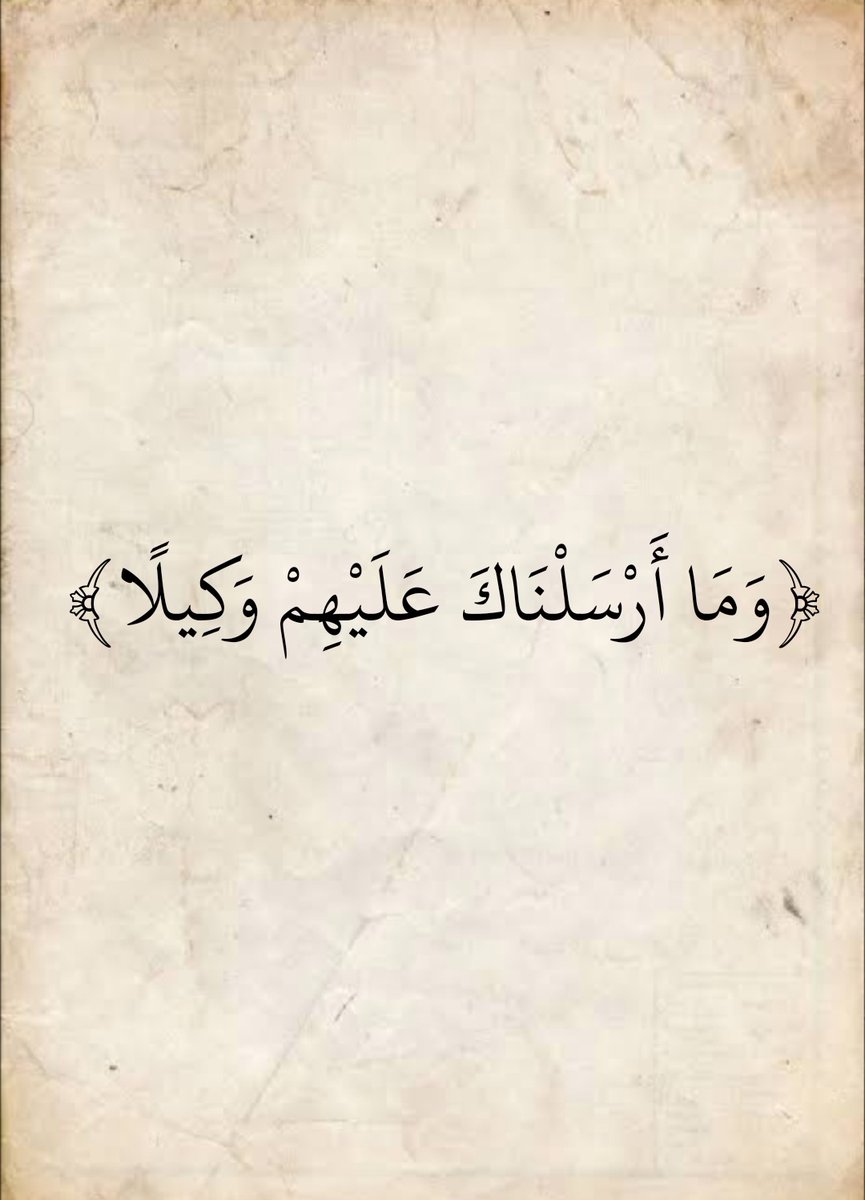 ﴿وَمَا أَرْسَلْنَاكَ عَلَيْهِمْ وَكِيلًا﴾